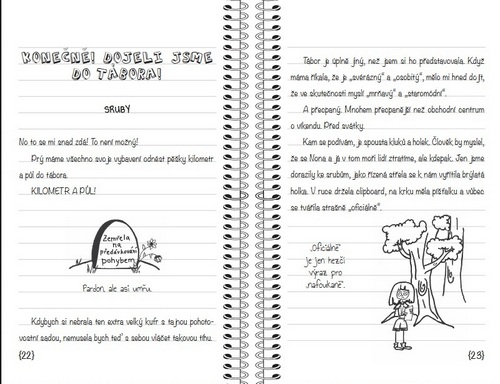 KONEČNĚ! DOJELI JSME
DO TÁBORA!
SRUBY
No to se mi snad zdá! To není možný!
Prý máme všechno svoje vybavení odnést pěšky kilometr
a půl do tábora.
KILOMETR A PŮL!
Zemřela
na
předávkování
pohybem
Pardon, ale asi umřu.
Kdybych si nebrala ten extra velký kufr s tajnou pohoto-
vostní sadou, nemusela bych teď s sebou vláčet takovou tíhu.
{22}
Tábor je úplně jiný, než jsem si ho představovala. Když
máma říkala, že je „svérázný“ a „osobitý“, mělo mi hned dojít,
že ve skutečnosti myslí „mrňavý“ a „staromódní“.
A přecpaný. Mnohem přecpanější než obchodní centrum
o víkendu. Před svátky.
Kam se podívám, je spousta kluků a holek. Člověk by myslel,
že se Nona a já v tom moři lidí ztratíme, ale kdepak. Jen jsme
dorazily ke srubům, jako řízená střela se k nám vyřítila brýlatá
holka. V ruce držela clipboard, na krku měla píšťalku a vůbec
se tvářila strašně „oficiálně“.
„Oficiálně“
je jen hezčí
výraz pro
„nafoukaně“.
{23}